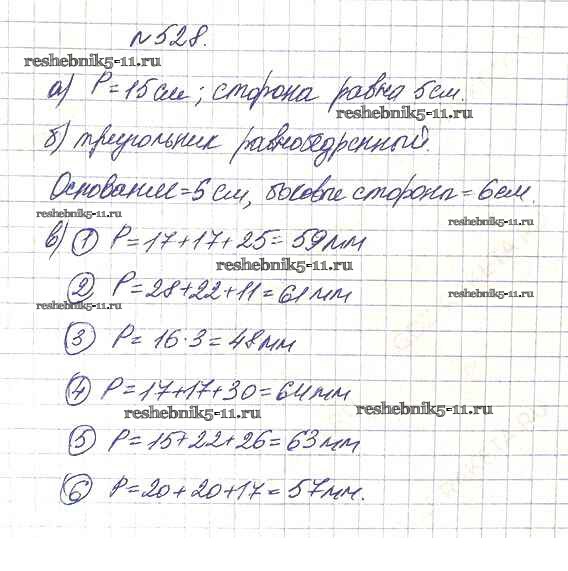 №528.
reshebnik5-11.ru
а) P=15см; сторона равна 5см.
reshebnik5-11.ru
б) треугольник равнобедренный
Основание=5см, боковые стороны=6см.
reshebnik5-11.ru reshebnik5-11.ru
в) 1 P=17+17+25=59мм
reshebnik5-11.ru
2 P=28+22+11=61мм
reshebnik5-11.ru reshebnik5-11.ru
3 P=16·3=48мм
4 P=17+17+30=64мм
reshebnik5-11.ru reshebnik5-11.ru
5 P=15+22+26=63мм
6 P=20+20+17=57мм.